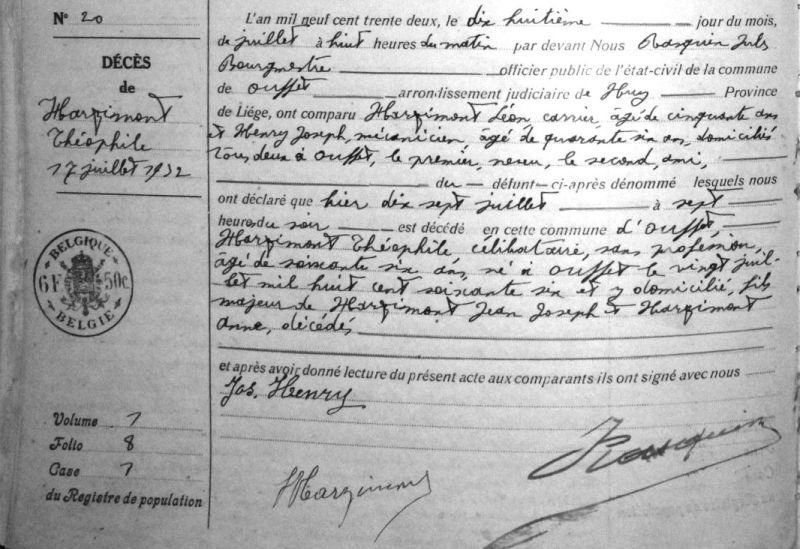 N° 20
DÉCÈS
de
Harzimont
Théophile
17 juillet 1932
BELGIQUE
6F 50c.
BELGIE
Volume 7
Folio 8
Case 7
du Registre de population
L'an mil neuf cent trente deux, le dix huitième jour du mois,
de juillet à huit heures du matin par devant Nous Rasquin Juls
Bourgmestre officier public de l'état-civil de la commune
de Ouffet arrondissement judiciaire de Huy Province
de Liége, ont comparu Harzimont Léon, carrier âgé de cinquante ans
et Henry Joseph, mécanicien âgé de quarante six ans, domiciliés
tous deux à Ouffet, le premier, neveu, le second, ami,
du défunt ci-après dénommé lesquels nous
ont déclaré que hier dix sept juillet à sept
heures du soir est décédé en cette commune d'Ouffet,
Harzimont Théophile célibataire, sans profession,
âgé de soixante six ans, né à Ouffet le vingt juil-
let mil huit cent soixante six et y domicilié, fils
majeur de Harzimont Jean Joseph et Harzimont
Anne, décédés
et après avoir donné lecture du présent acte aux comparants ils ont signé avec nous
Jos. Henry
Rasquin
Harzimont